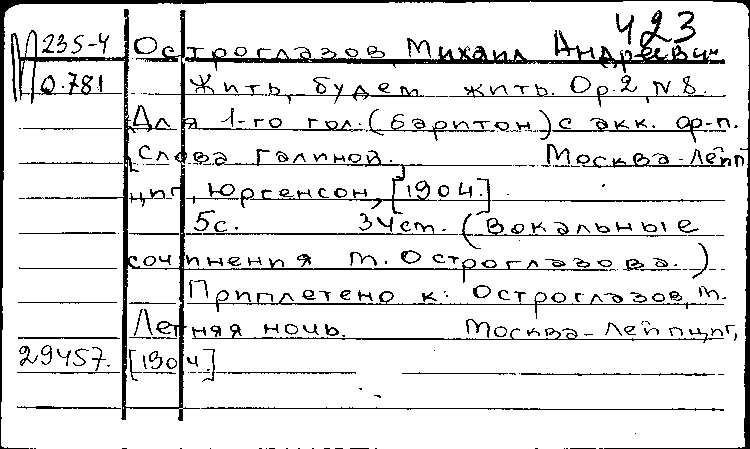 423
М 235-4 Остроглазов, Михаил Андреевич
0.781 Жить, будем жить. Op.2, N 8.
Для 1-го гол. (баритон) с акк. ф-п.
Слова Галиной. Москва-Лейп
циг, Юргенсон, [1904.]
5с. 34см. (Вокальные
сочинения М. Остроглазова.)
Приплетено к: Остроглазов, М.
Летняя ночь. Москва-Лейпциг,
29457. [1904.]